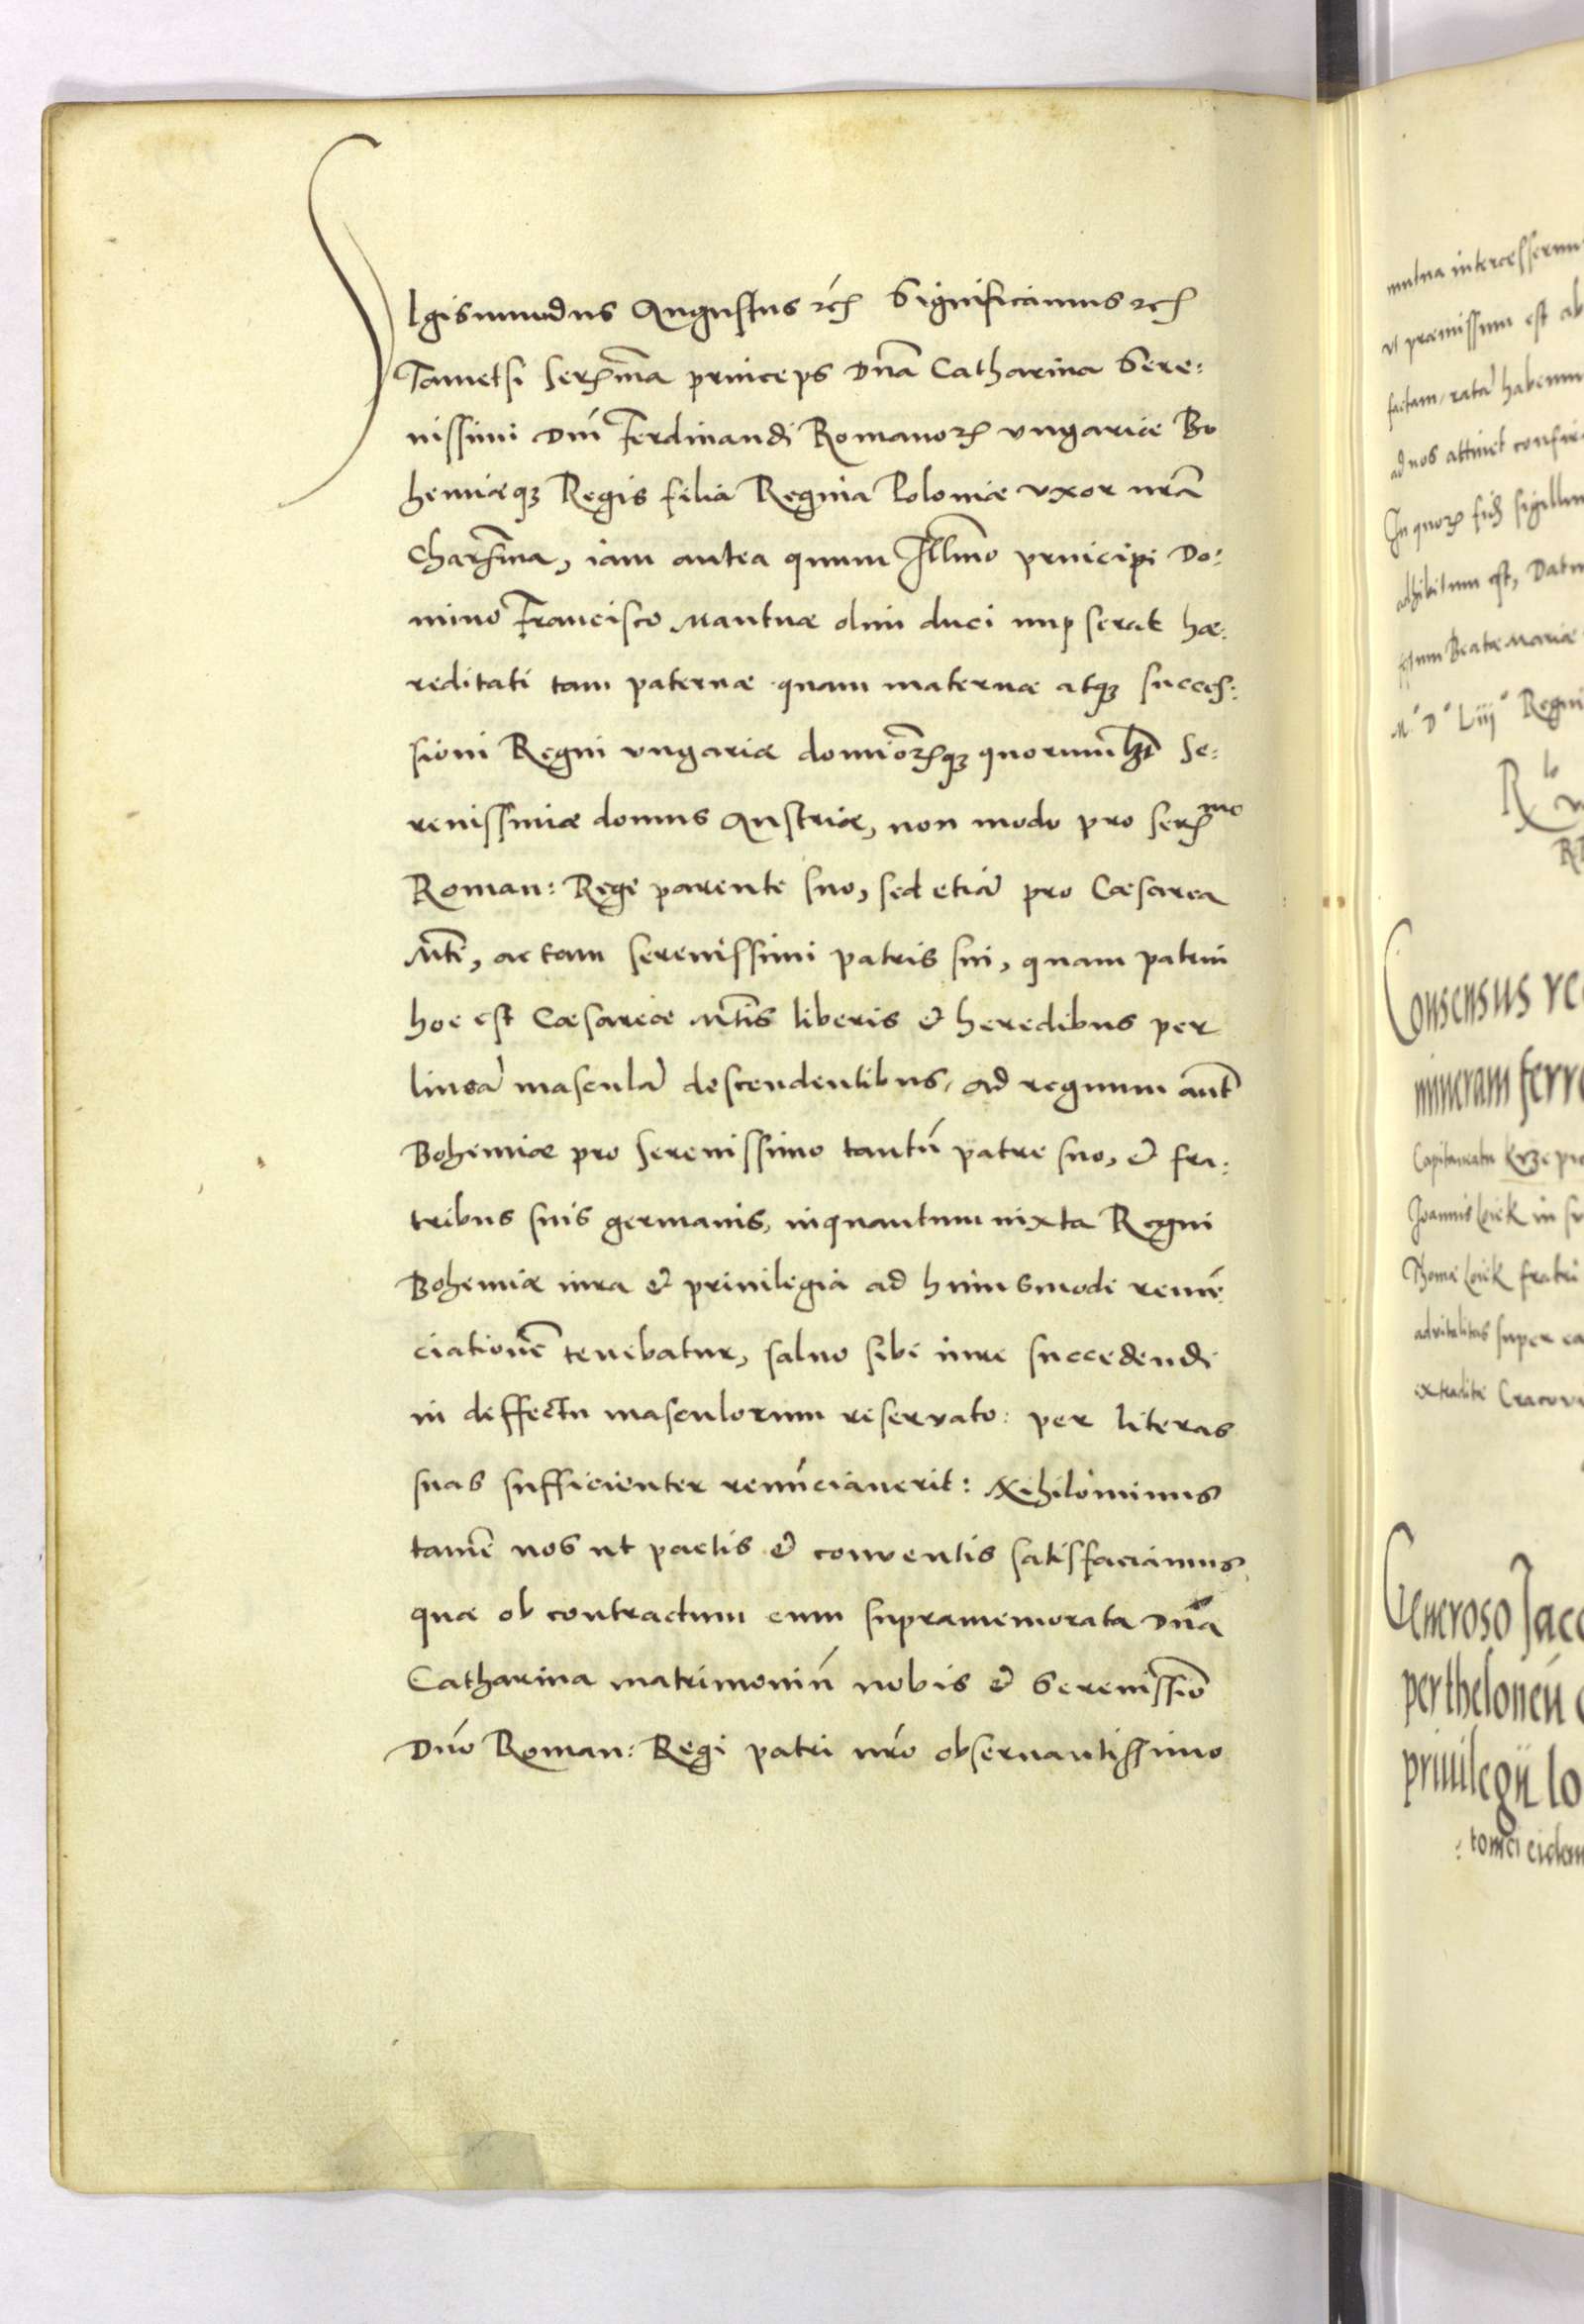 SIgismundus Augustus etc̃ Significamus etc̃
Tametsi Serꝫma princeps Dña Catharina Sere:
nissimi Dñi Ferdinandi Romanorꝫ Vngariæ Bo
hemiæqꝫ Regis filia Regina Poloniæ uxor nr̃a
Charꝫma, iam antea quum Illmo principi Do:
mino Francisco Mantuæ olim duci nupserat hæ:
reditati tam paternæ quam maternæ atqꝫ succes:
sioni Regni Vngariæ dominiorꝫqꝫ quorum Se:
renissimæ domus Austriæ, non modo pro serꝫmo
Roman: Rege parente suo, sed etiã pro Cæsarea
Mte, ac tam serenissimi patris sui, quam patrui
hoc est Cæsareæ Mtis liberis & heredibus per
lineã masculã descendentibus, ad regnum aut̃
Bohemiæ pro Serenissimo tantũ patre suo, & fra:
tribus suis germanis, inquantum iuxta Regni
Bohemiæ iura & priuilegia ad huiusmodi renũ:
ciationẽ tenebatur, saluo sibi iure succedendi
in deffectu masculorum reseruato: per literas
suas sufficienter renũciauerit: Nihilominus
tamẽ nos ut pactis & conventis satisfaciamus,
quæ ob contractum cum supramemorata Dña
Catharina matrimoniũ nobis & Serenissimo
Dño Roman: Regi patri nr̃o obseruantissimo
mutua intercesserun
ut præmissum est ab
factam, ratã habemu
ad nos attinet confir
In quorꝫ fidẽ sigillum
adhibitum est, Datu
festum Beatæ Mariæ
M° D° Liij° Regni
Consensus re
mineram ferr
Capitaneatu Krzepi
Joannis Loiek in
Thomæ Loiek fratri
advitalitas super ea
extraditæ Cracoui
Generoso Jac
per theloneũ
priuilegii lo